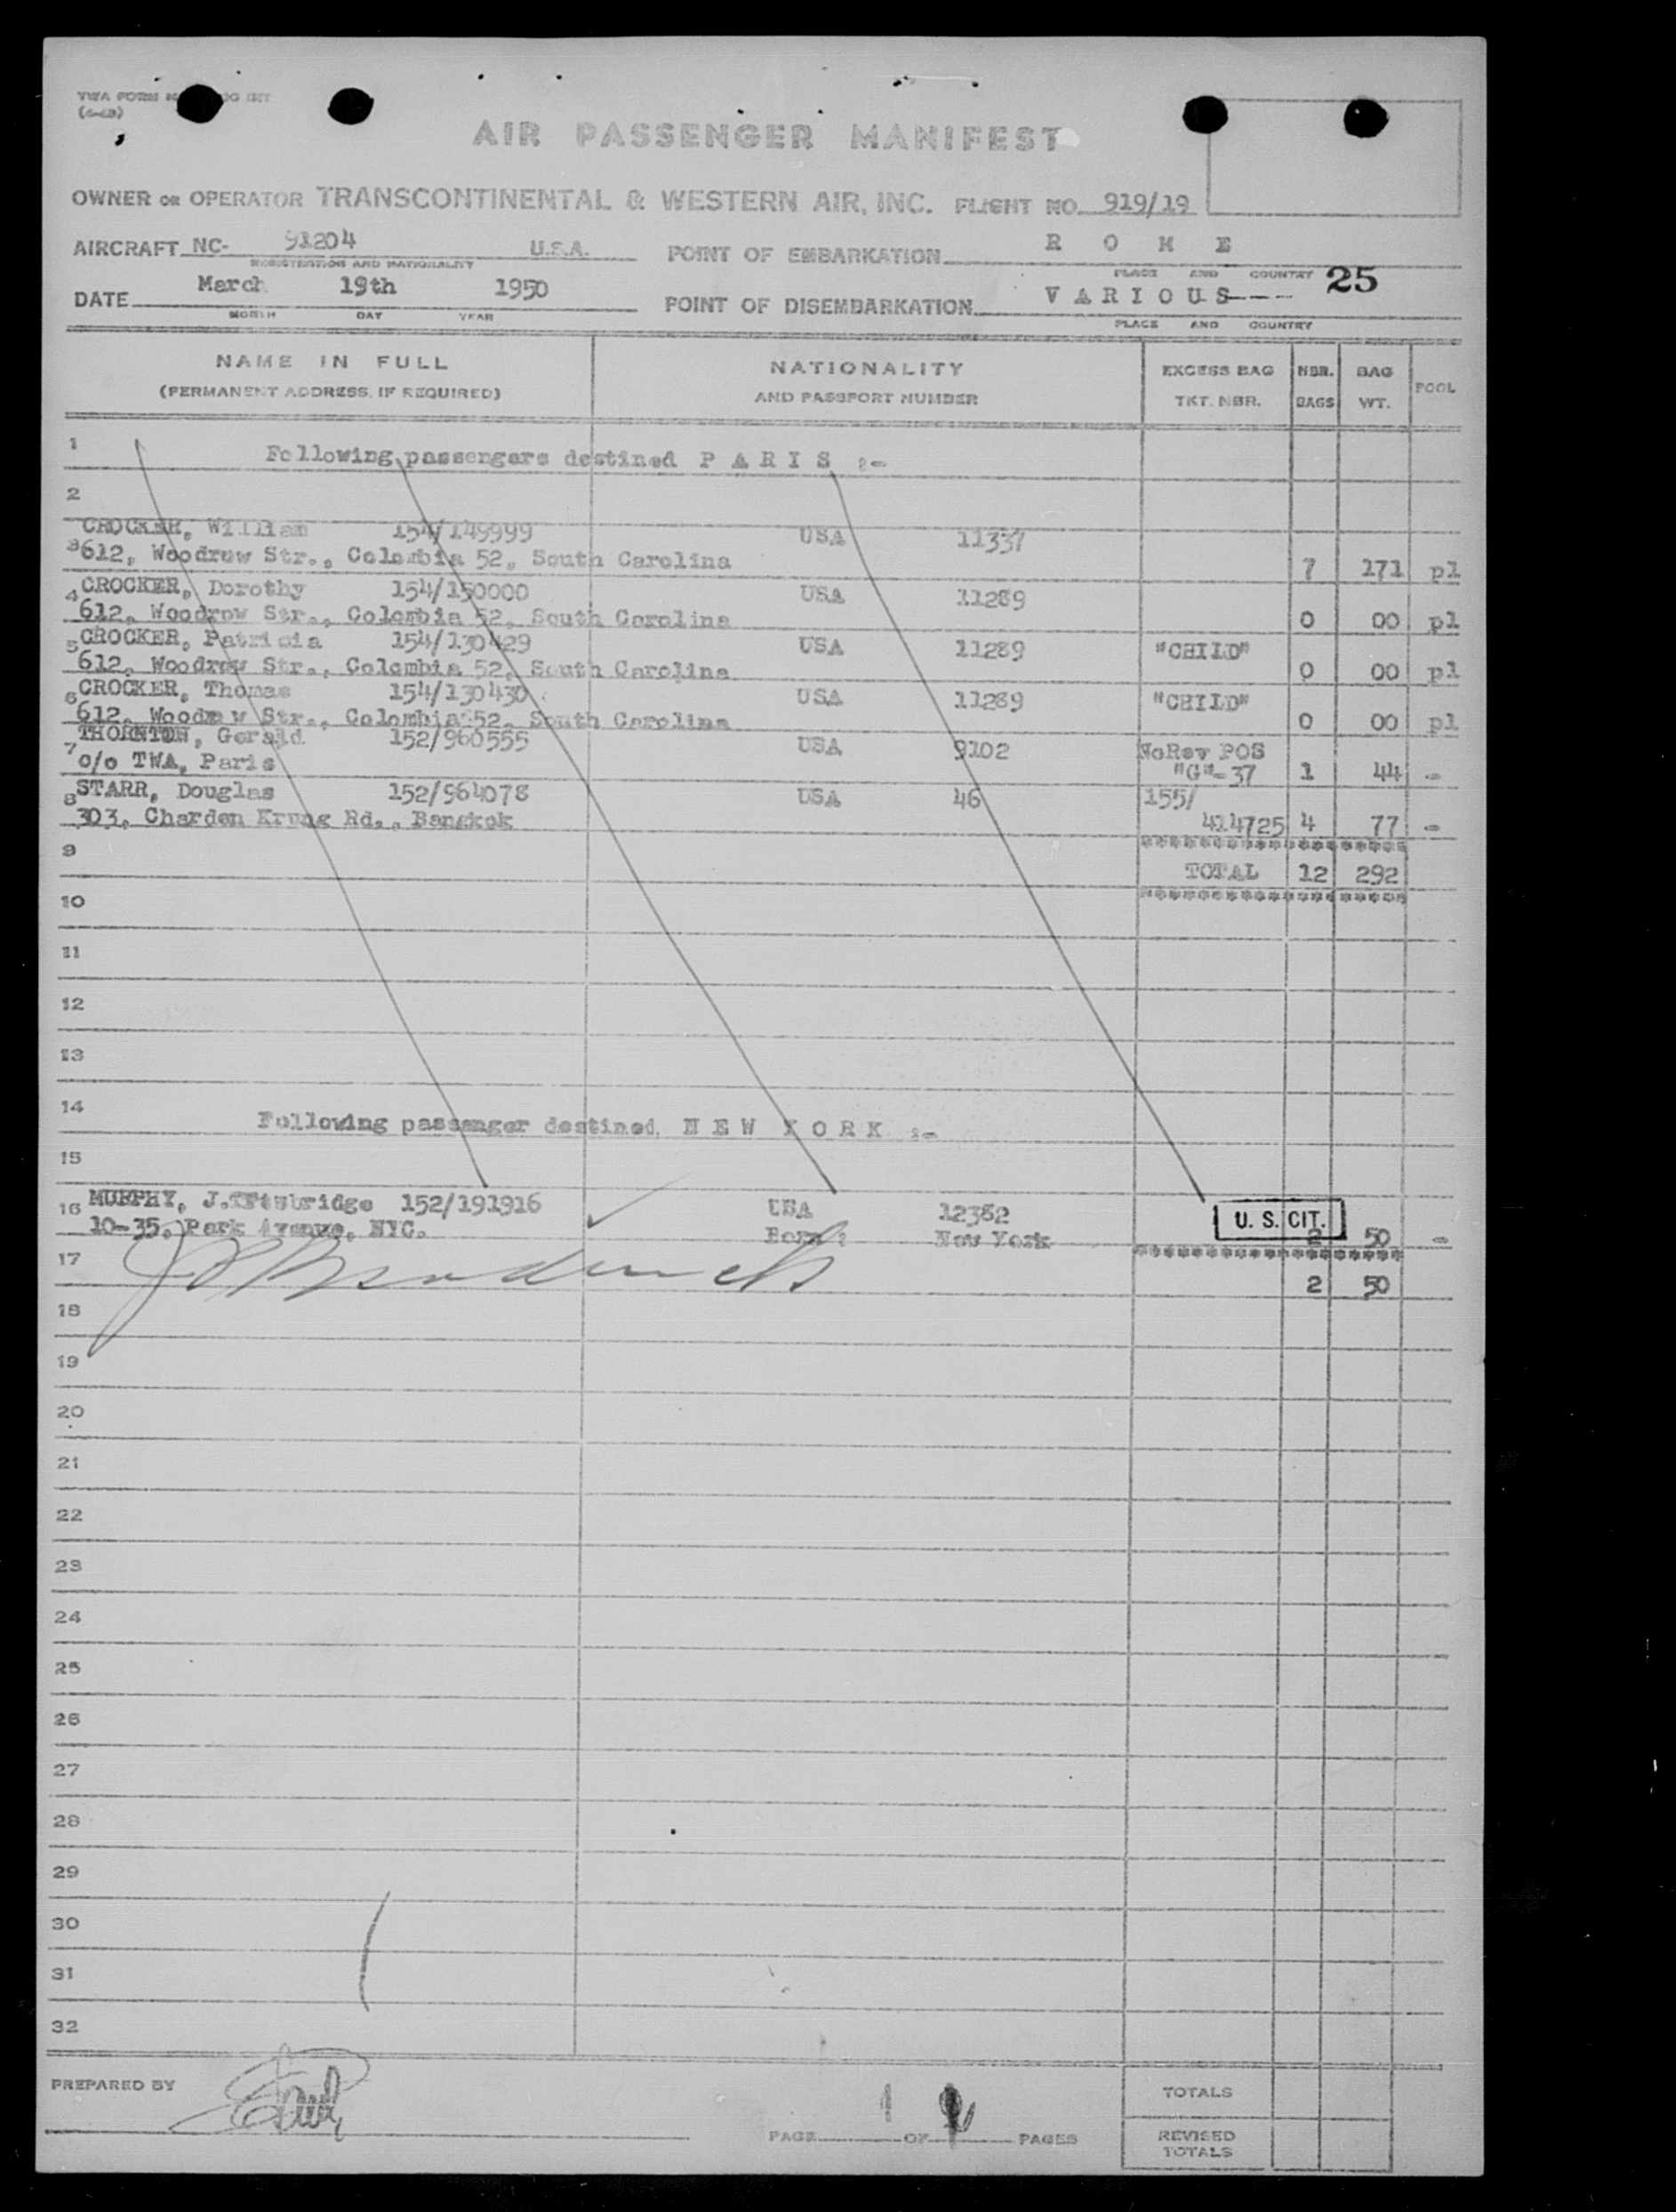 TWA FORM
AIR PASSENGER MANIFEST
OWNER OR OPERATOR TRANSCONTINENTAL & WESTERN AIR, INC. FLIGHT NO. 919/19
AIRCRAFT NC- 91204 U.S.A. POINT OF EMBARKATION R O M E
REGISTRATION AND NATIONALITY PLACE AND COUNTRY 25
DATE March 19th 1950 POINT OF DISEMBARKATION V A R I O U S---
MONTH DAY YEAR PLACE AND COUNTRY
NAME IN FULL NATIONALITY EXCESS BAG NBR. BAG POOL
(PERMANENT ADDRESS, IF REQUIRED) AND PASSPORT NUMBER TKT. NBR. BAGS WT.
1 Following passengers destined P A R I S :-
2
CROCKER, William 154/149999 USA 11337
3 612, Woodrow Str., Colombia 52, South Carolina 7 171 pl
4 CROCKER, Dorothy 154/150000 USA 11289
612, Woodrow Str., Colombia 52, South Carolina 0 00 pl
5 CROCKER, Patricia 154/130429 USA 11289 "CHILD"
612, Woodrow Str., Colombia 52, South Carolina 0 00 pl
6 CROCKER, Thomas 154/130430 USA 11289 "CHILD"
612, Woodrow Str., Colombia 52, South Carolina 0 00 pl
THORNTON, Gerald 152/960555 USA 9102 NoRev POS
7 c/o TWA, Paris "G"-37 1 44 -
8 STARR, Douglas 152/964078 USA 46 155/
303, Charden Krung Rd., Bangkok 414725 4 77 -
9 TOTAL 12 292
10
11
12
13
14 Following passenger destined N E W Y O R K :-
15
16 MURPHY, J. 152/191916 USA 12382 U. S. CIT.
10-35, Park Avenue, NYC. Born : New York 2 50 -
17 2 50
18
19
20
21
22
23
24
25
26
27
28
29
30
31
32
PREPARED BY TOTALS
PAGE 1 OF PAGES REVISED
TOTALS